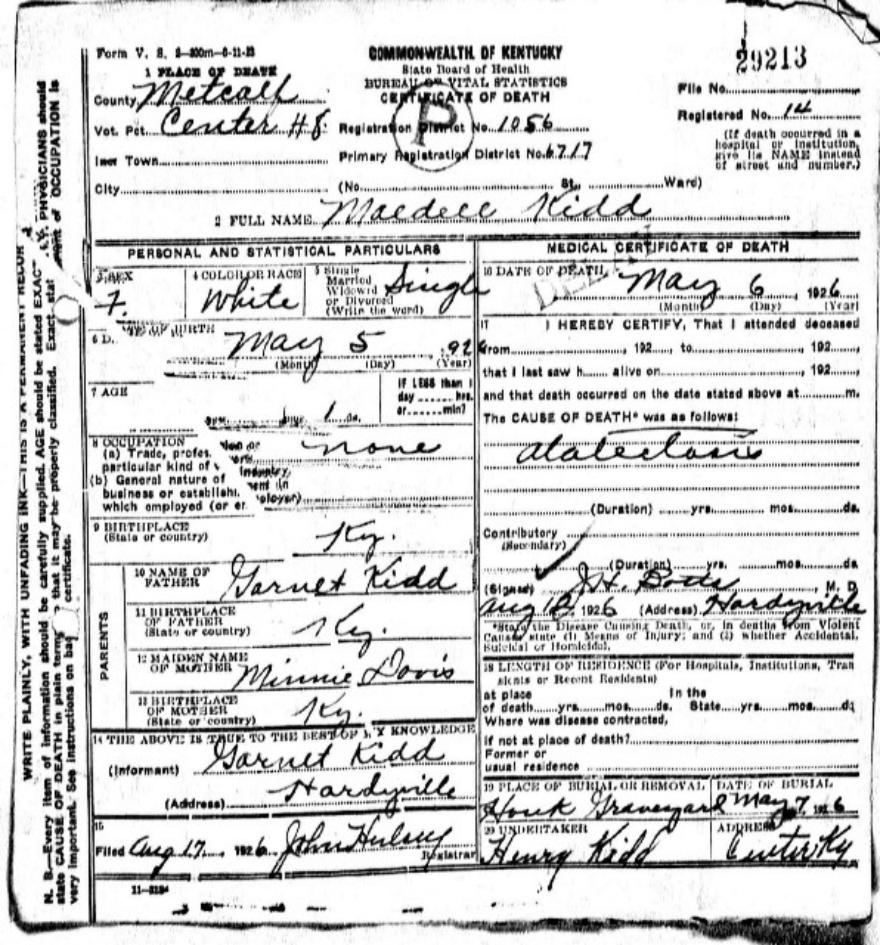 Form V. S. 2-300m-6-11-23
COMMONWEALTH OF KENTUCKY
State Board of Health
BUREAU OF VITAL STATISTICS
CERTIFICATE OF DEATH
29213
File No.
Registered No. 14
(If death occurred in a hospital or institution, give its NAME instead of street and number.)
1 PLACE OF DEATH
County Metcalf
Vot. Pct. Center #8
Registration District No. 1056
Town
Primary Registration District No. 6717
P
City
(No. St. Ward)
2 FULL NAME Maedell Kidd
PERSONAL AND STATISTICAL PARTICULARS
3 SEX
F.
4 COLOR OR RACE
White
5 Single
Married
Widowed
or Divorced
(Write the word)
Single
6 D. OF BIRTH
May 5 , 192
(Month) (Day) (Year)
7 AGE
1 ds.
If LESS than 1
day hrs.
or min?
8 OCCUPATION
(a) Trade, profes
particular kind of
(b) General nature of
business or establish
which employed (or er
none
9 BIRTHPLACE
(State or country)
Ky.
PARENTS
10 NAME OF
FATHER
Garnet Kidd
11 BIRTHPLACE
OF FATHER
(State or country)
Ky.
12 MAIDEN NAME
OF MOTHER
Minnie Davis
13 BIRTHPLACE
OF MOTHER
(State or country)
Ky.
14 THE ABOVE IS TRUE TO THE BEST OF MY KNOWLEDGE
(Informant) Garnet Kidd
(Address) Hardyville
15
Filed Aug 17 1926 John Hulsey
Registrar
11-3184
MEDICAL CERTIFICATE OF DEATH
16 DATE OF DEATH
May 6 , 1926
(Month) (Day) (Year)
17 I HEREBY CERTIFY, That I attended deceased
from , 192 , to , 192 ,
that I last saw h alive on , 192 ,
and that death occurred on the date stated above at m.
The CAUSE OF DEATH* was as follows:
Atalectasis
(Duration) yrs. mos. ds.
Contributory
(Secondary)
(Duration) yrs. mos. ds.
(Signed) J.H. , M. D.
Aug 12, 1926 (Address) Hardyville
*State the Disease Causing Death, or, in deaths from Violent
Causes, state (1) Means of Injury; and (2) whether Accidental,
Suicidal or Homicidal.
18 LENGTH OF RESIDENCE (For Hospitals, Institutions, Tran
sients or Recent Residents)
at place In the
of death yrs. mos. ds. State yrs. mos. ds
Where was disease contracted,
if not at place of death?
Former or
usual residence
19 PLACE OF BURIAL OR REMOVAL
Houk Graveyard
DATE OF BURIAL
May 7, 1926
20 UNDERTAKER
Henry Kidd
ADDRESS
Center Ky
WRITE PLAINLY, WITH UNFADING INK—THIS IS A PERMANENT RECOR
N. B.—Every item of information should be carefully supplied. AGE should be stated EXACT Y. PHYSICIANS should
state CAUSE OF DEATH in plain terms that it may be properly classified. Exact stat ement of OCCUPATION is
very important. See instructions on back certificate.